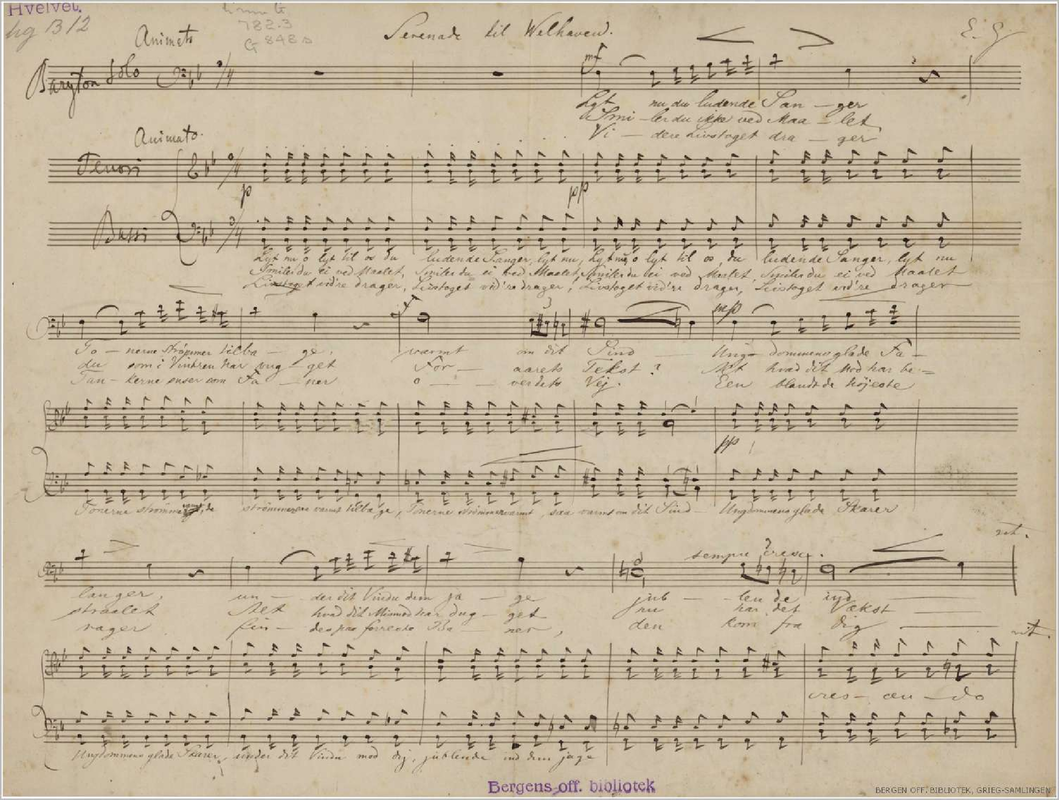 Hvelvet.
782.3
Animato
Serenade til Welhaven.
E. G.
Baryton Solo
mf
Lyt nu du ludende San - ger
Smi - ler du ikke ved Maa - let
Vi - dere Livstoget dra - ger
Animato.
Tenori
p
pp
Bassi
Lyt nu o lyt til os du ludende Sanger, lyt nu, lyt nu o lyt til os, du ludende Sanger, lyt nu
Smiler du ei ved Maalet, Smiler du ei ved Maalet, Smiler du ei ved Maalet, Smiler du ei ved Maalet
Livstoget vid're drager, Livstoget vid're drager, Livstoget vid're drager, Livstoget vid're drager
f
mp
To - nerne strömmer tilba - ge, varmt om dit Sind Ungdommens glade
du som i Vint'ren har get For - aarets Tekst? Alt hvad dit Mod har be -
Tan - kerne suser som Fa - ner o - verdets Vej. Een blandt de höjeste
pp
Tonerne strömme strömmer tilba'ge, Tonerne saa varmt om dit Sind Ungdommens glade Skarer
rit.
sempre cresc.
langer, un - der dit Vindu dem ja - ge jub - lende ind
straalet Alt hvad dit Mismod har dug - get nu har det Vækst
rager fin - des paa forreste Ba - ner, den kom fra dig
rit.
cres - cen - do
Ungdommens glade Skarer, under dit Vindu med dig, jublende ind dem jage
Bergens off. bibliotek
BERGEN OFF. BIBLIOTEK, GRIEG-SAMLINGEN